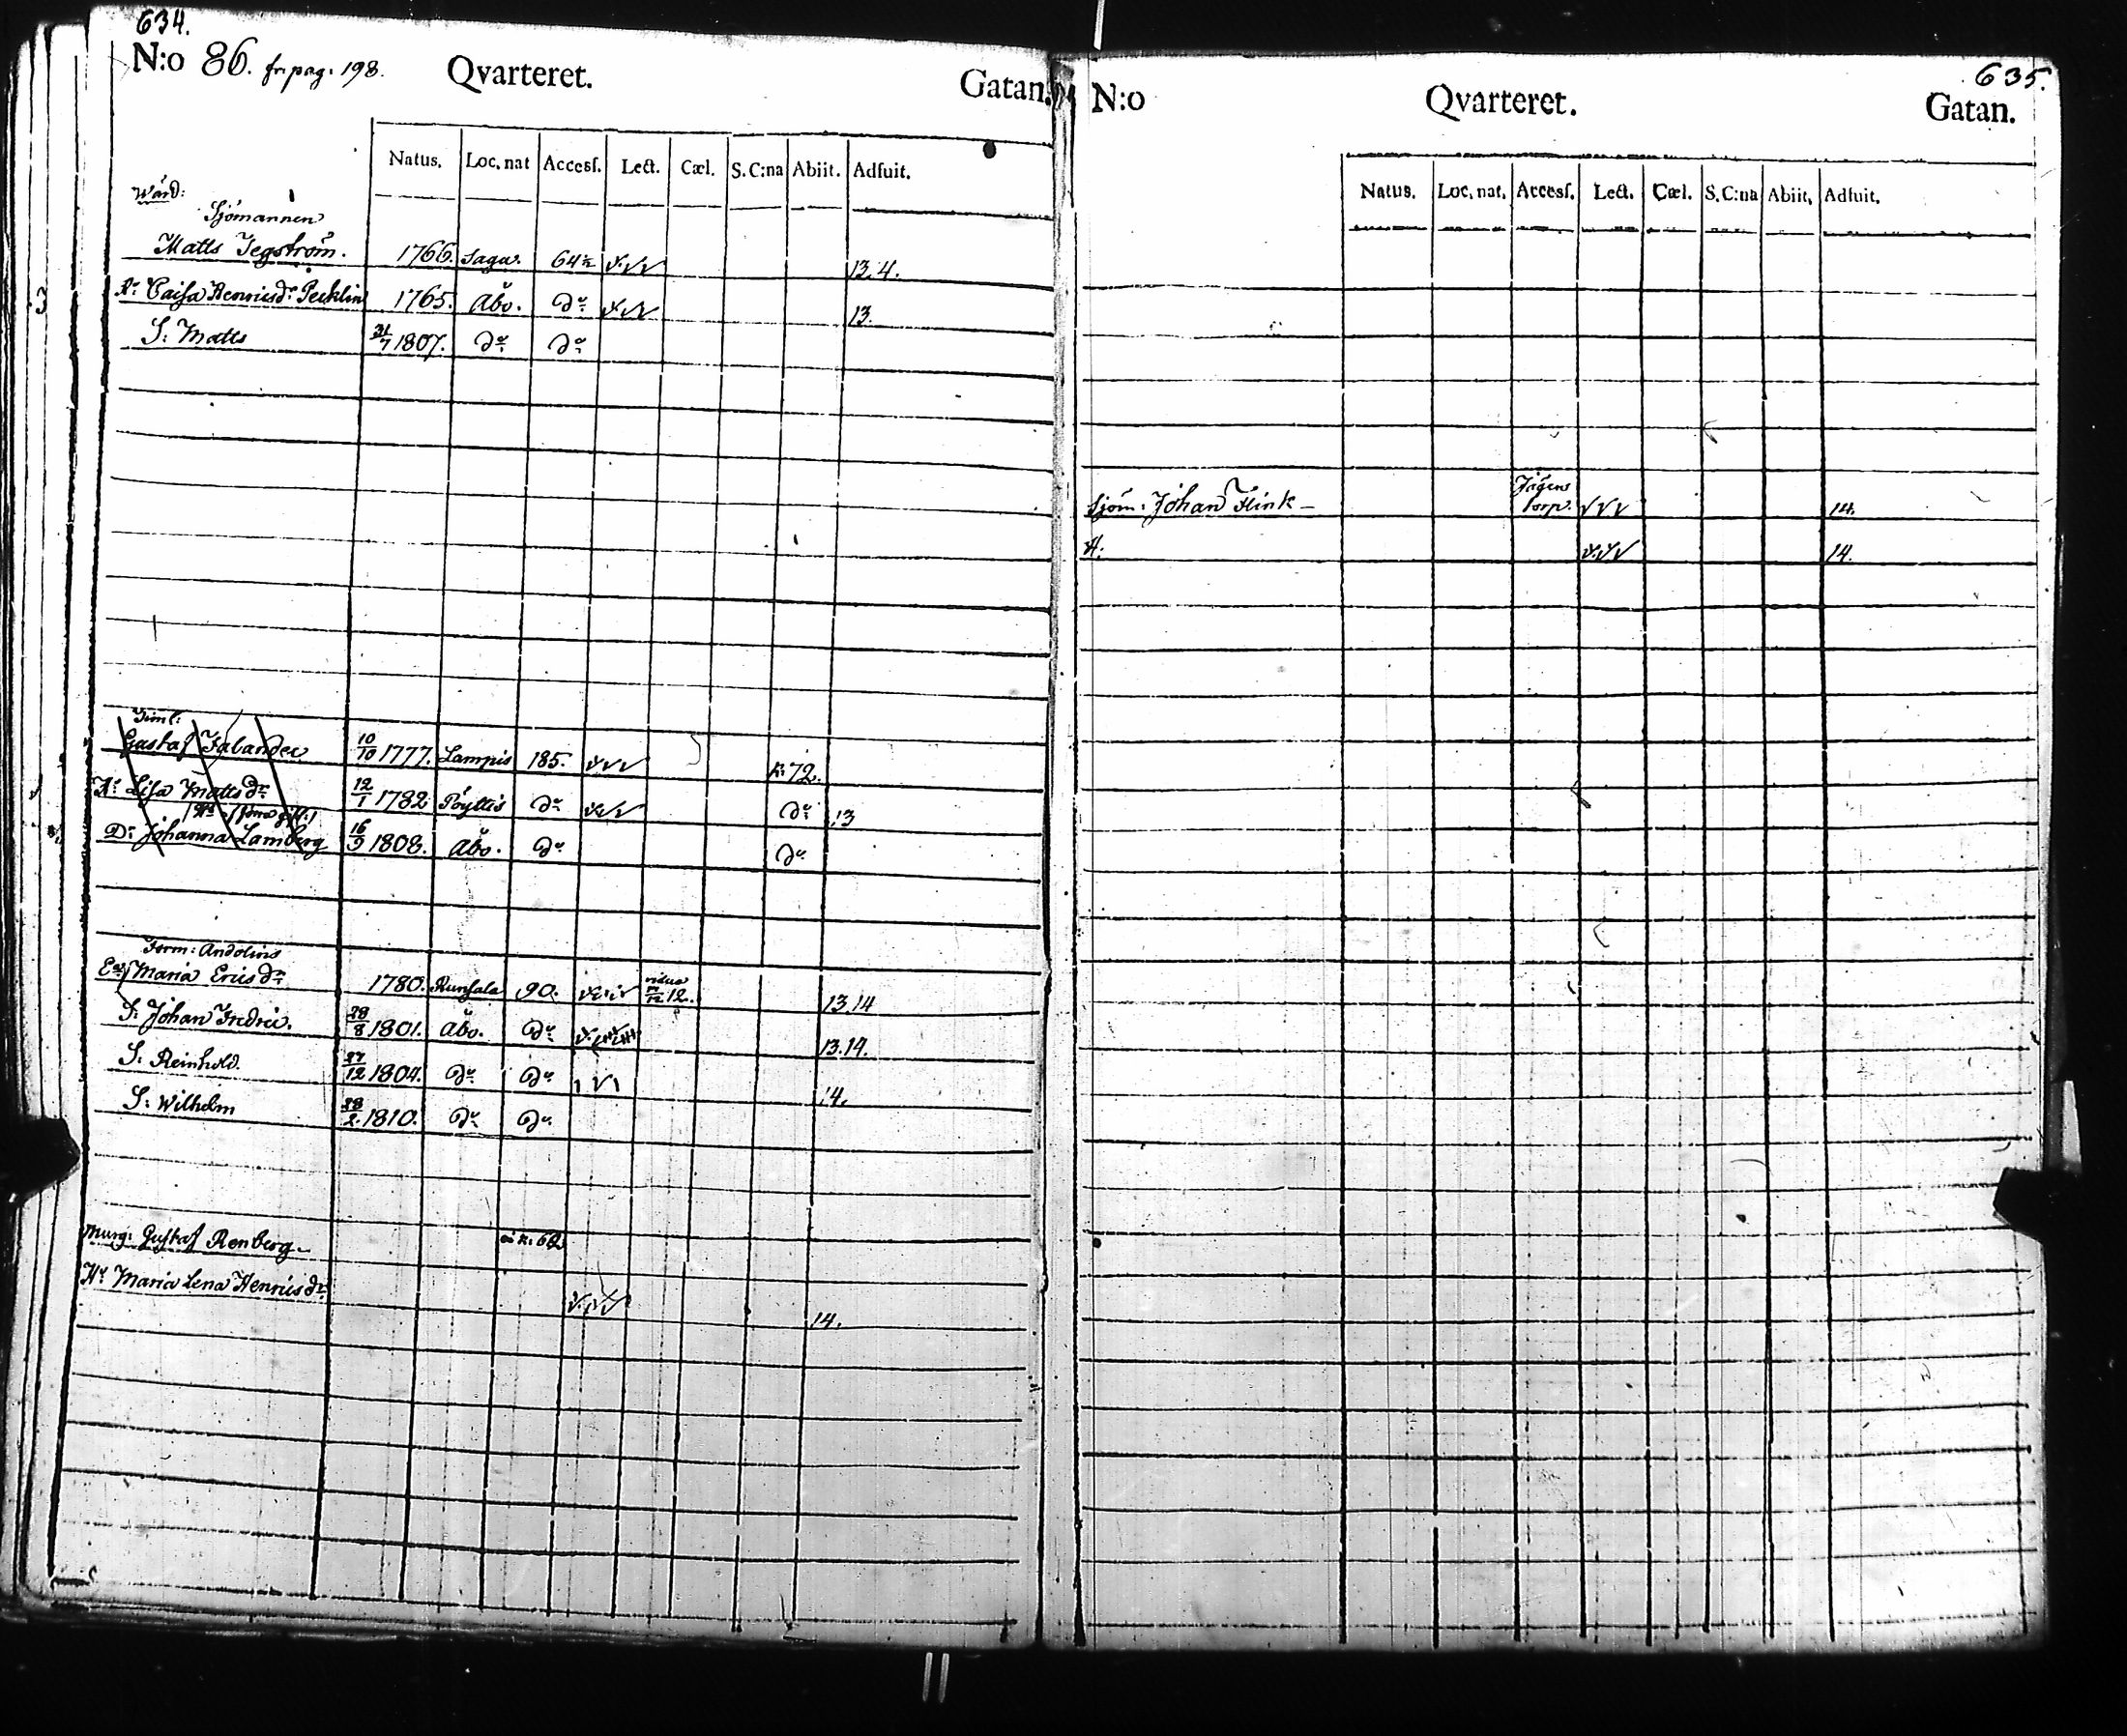 634.
N:o 86. fr. pag. 198. Qvarteret. Gatan.
Natus. Loc. nat Accesſ. Lect. Cæl. S. C:na Abiit. Adfuit.
Wård:
Sjömannen
Matts Segström. 1766. Sagu. 64½ 13. 4.
Hr Caisa Henricsdr Pecklin 1765. Åbo. do 13.
S: Matts 21/7 1807. do do
Timl:
Gustaf Jalander 10/10 1777. Lampis 185. k: 72.
Hr Lisa Mattsdr 12/1 1782 Pöyttis do do 13
Dr Johanna Lamberg 16/9 1808. Åbo. do do
Form: Andolins
Ea Maria Ericsdr 1780. Runsala 90. vidua 12. 13.14
S: Johan Fredric. 28/8 1801. Åbo. do 13.14.
S: Reinhold. 27/12 1804. do do 14.
S: Wilhelm 28/2 1810. do do
Murg: Gustaf Renberg a k: 62
Hr Maria Lena Henricsdr 14.
635.
N:o Qvarteret. Gatan.
Natus. Loc. nat. Accesſ. Lect. Cæl. S. C:na Abiit. Adfuit.
Sjöm: Johan Flink - Jägens torp. 14.
H: 14.